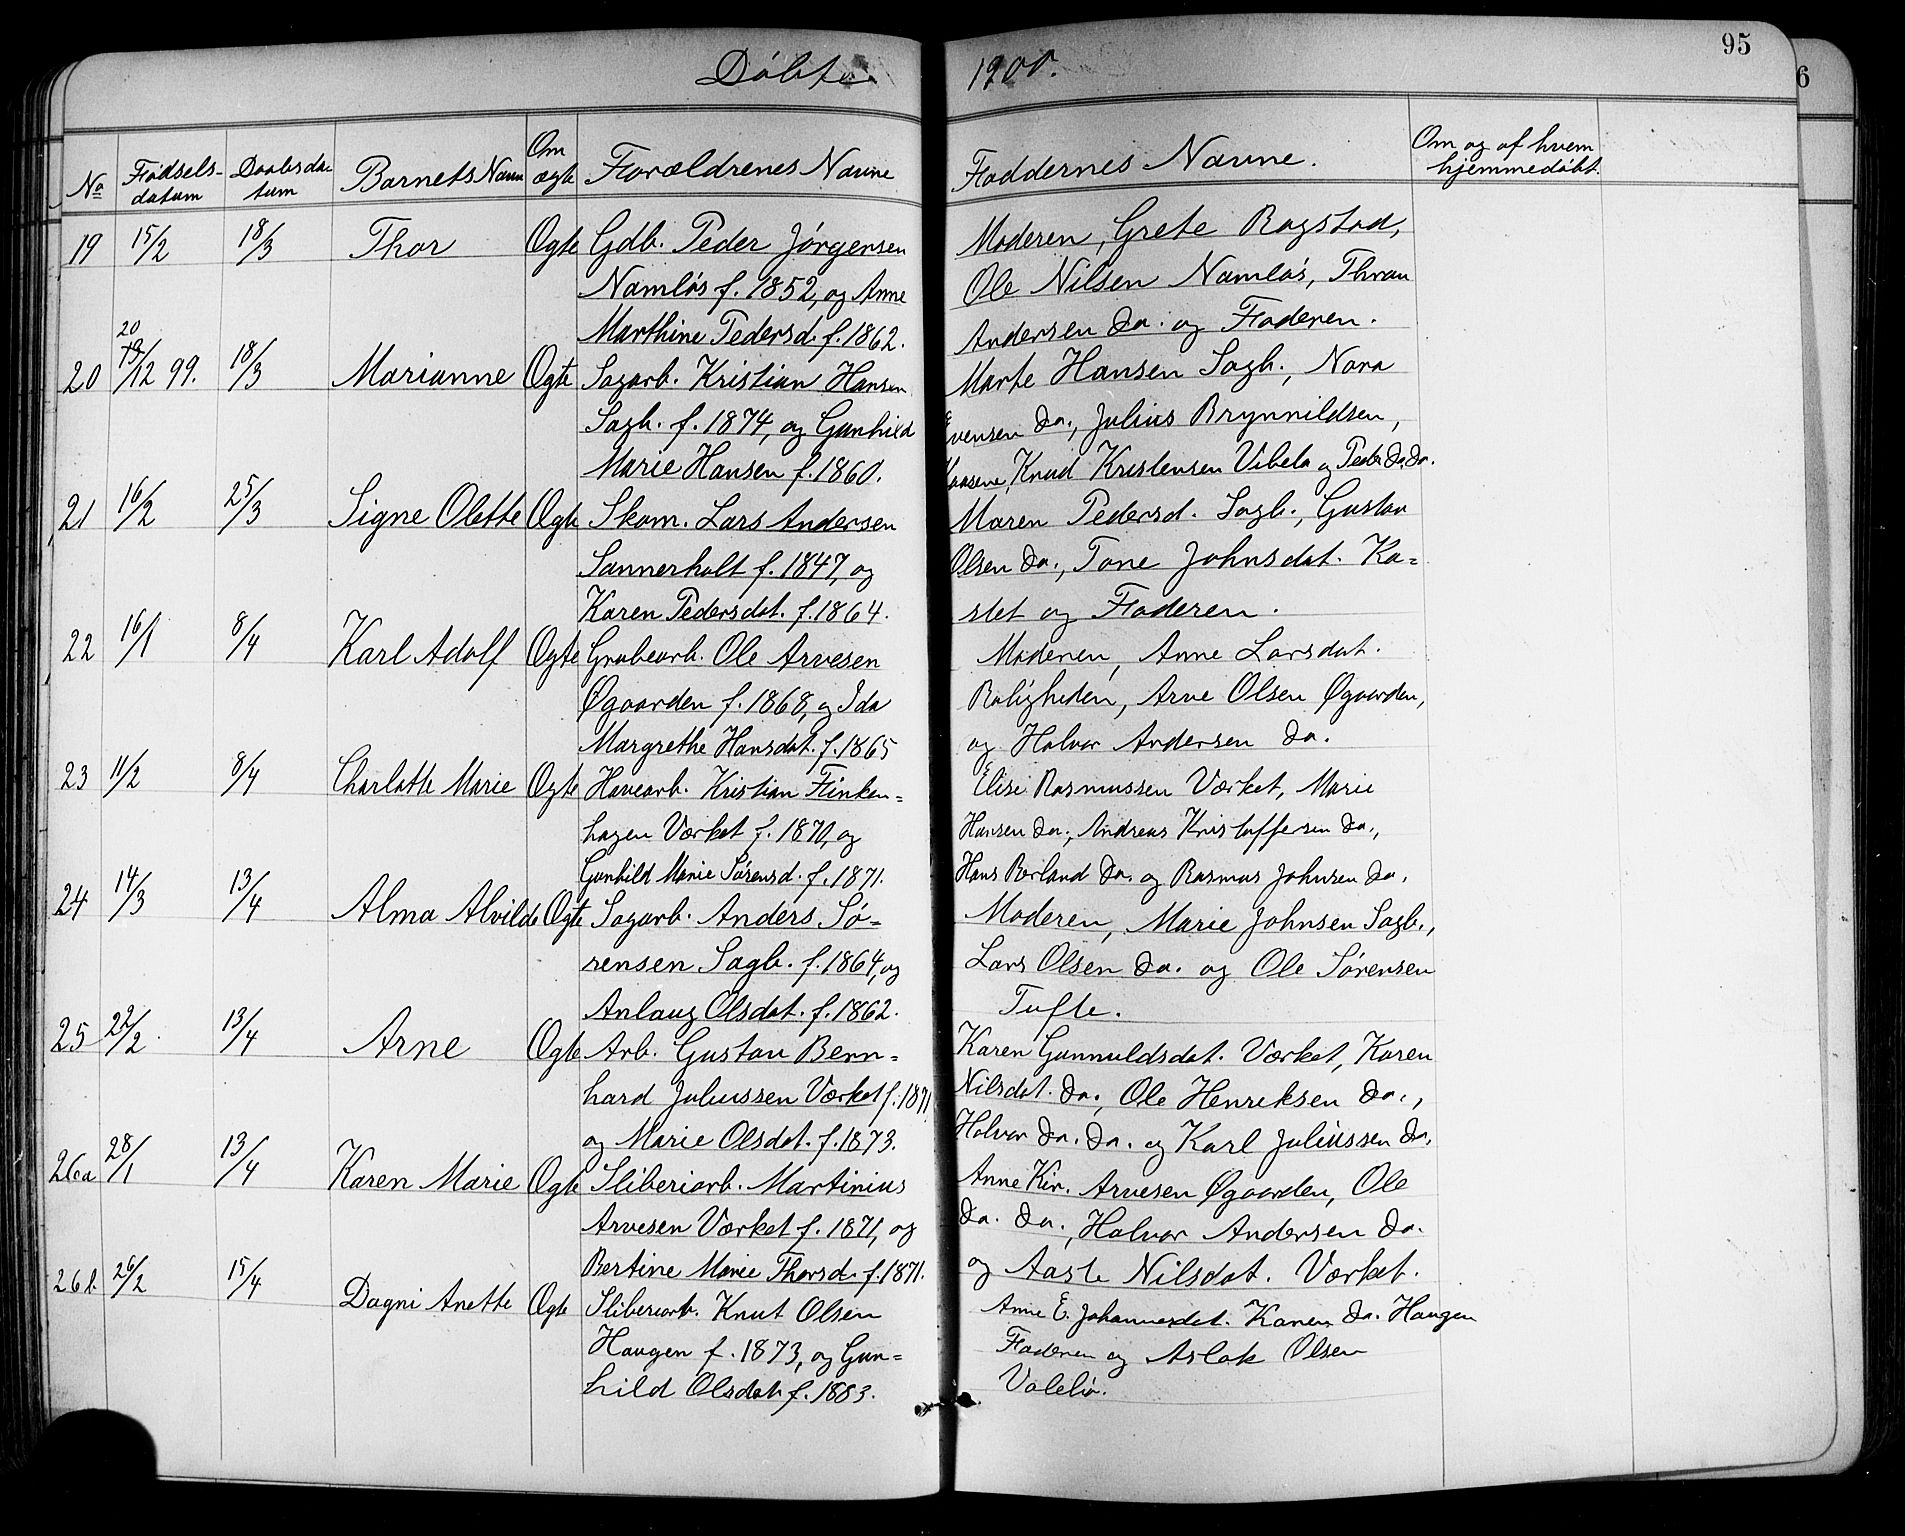 95
6
Döbte 1900.
No Fødsels-datum Daabsdatum Barnets Navn Om ægte Forældrenes Navne Faddernes Navne. Om og af hvem hjemmedöbt.
19 15/2 18/3 Thor Ogte Gdb. Peder Jörgensen Moderen, Grete Bagstad,
Namlös f. 1852, og Anne Ole Nilsen Namlös, Thran
Marthine Pedersd. f. 1862. Andersen do. og Faderen.
20 20/12 99. 18/3 Marianne Ogte Sagarb. Kristian Hansen Marte Hansen Sagb., Nora
Sagb. f. 1874, og Gunhild Evensen do., Julius Brynnildsen,
Marie Hansen f. 1860. Knud Kristensen Vibeto og Peder do. do.
21 16/2 25/3 Signe Olette Ogte Skom. Lars Andersen Maren Pedersd. Sagb., Gustav
Sannerholt f. 1847, og Olsen do., Tone Johnsdat. Ka=
Karen Pedersdat. f. 1864. stet og Faderen.
22 16/1 8/4 Karl Adolf Ogte Grubearb. Ole Arvesen Moderen, Anne Larsdat.
Øgaarden f. 1868, og Ida Boligheden, Arve Olsen Øgaarden,
Margrethe Hansdat. f. 1865 og Halvor Andersen do.
23 11/2 8/4 Charlotte Marie Ogte Havearb. Kristian Finken= Elise Rasmussen Værket, Marie
hagen Værket f. 1870, og Hansen do., Andreas Kristoffersen do.,
Gunhild Marie Sörensd. f. 1871. Hans Berland do. og Rasmus Johnsen do.
24 14/3 13/4 Alma Alvilde Ogte Sagarb. Anders Sö= Moderen, Marie Johnsen Sagb.,
rensen Sagb. f. 1864, og Lars Olsen do. og Ole Sörensen
Anlaug Olsdat. f. 1862. Tufte.
25 22/2 13/4 Arne Ogte Arb. Gustav Bern= Karen Gunnuldsdat. Værket, Karen
hard Juliussen Værket f. 1871 Nilsdat. do., Ole Henriksen do.,
og Marie Olsdat. f. 1873. Halvor do. do. og Karl Juliussen do.
26a 28/1 13/4 Karen Marie Ogte Sliberiarb. Martinius Anne Kir. Arvesen Øgaarden, Ole
Arvesen Værket f. 1871, og do. do., Halvor Andersen do.
Bertine Marie Thorsd. f. 1871. og Aaste Nilsdat. Værket.
26b. 26/2 15/4 Dagni Anette Ogte Sliberiarb. Knut Olsen Anne E. Johannesdat. Karen do. Haugen
Haugen f. 1873, og Gun= Faderen og Aslak Olsen
hild Olsdat. f. 1883. Valebö.